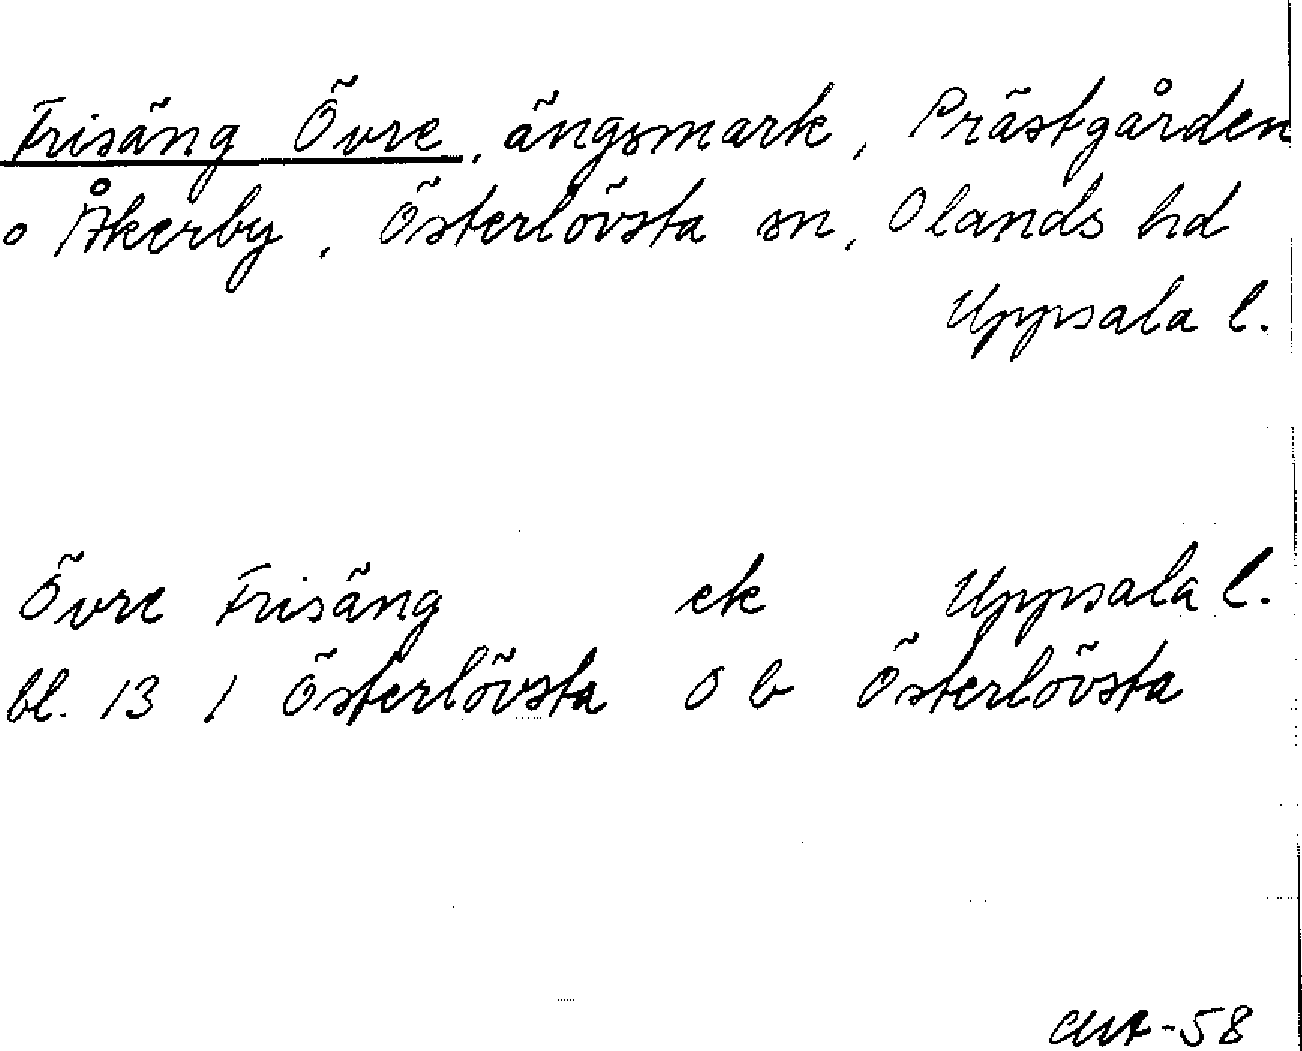 Frisäng Övre, ängsmark, Prästgården
o Åkerby, Österlövsta sn, Olands hd
Uppsala l.
Övre Frisäng ek Uppsala l.
bl. 13 / Österlövsta o b Österlövsta
-58